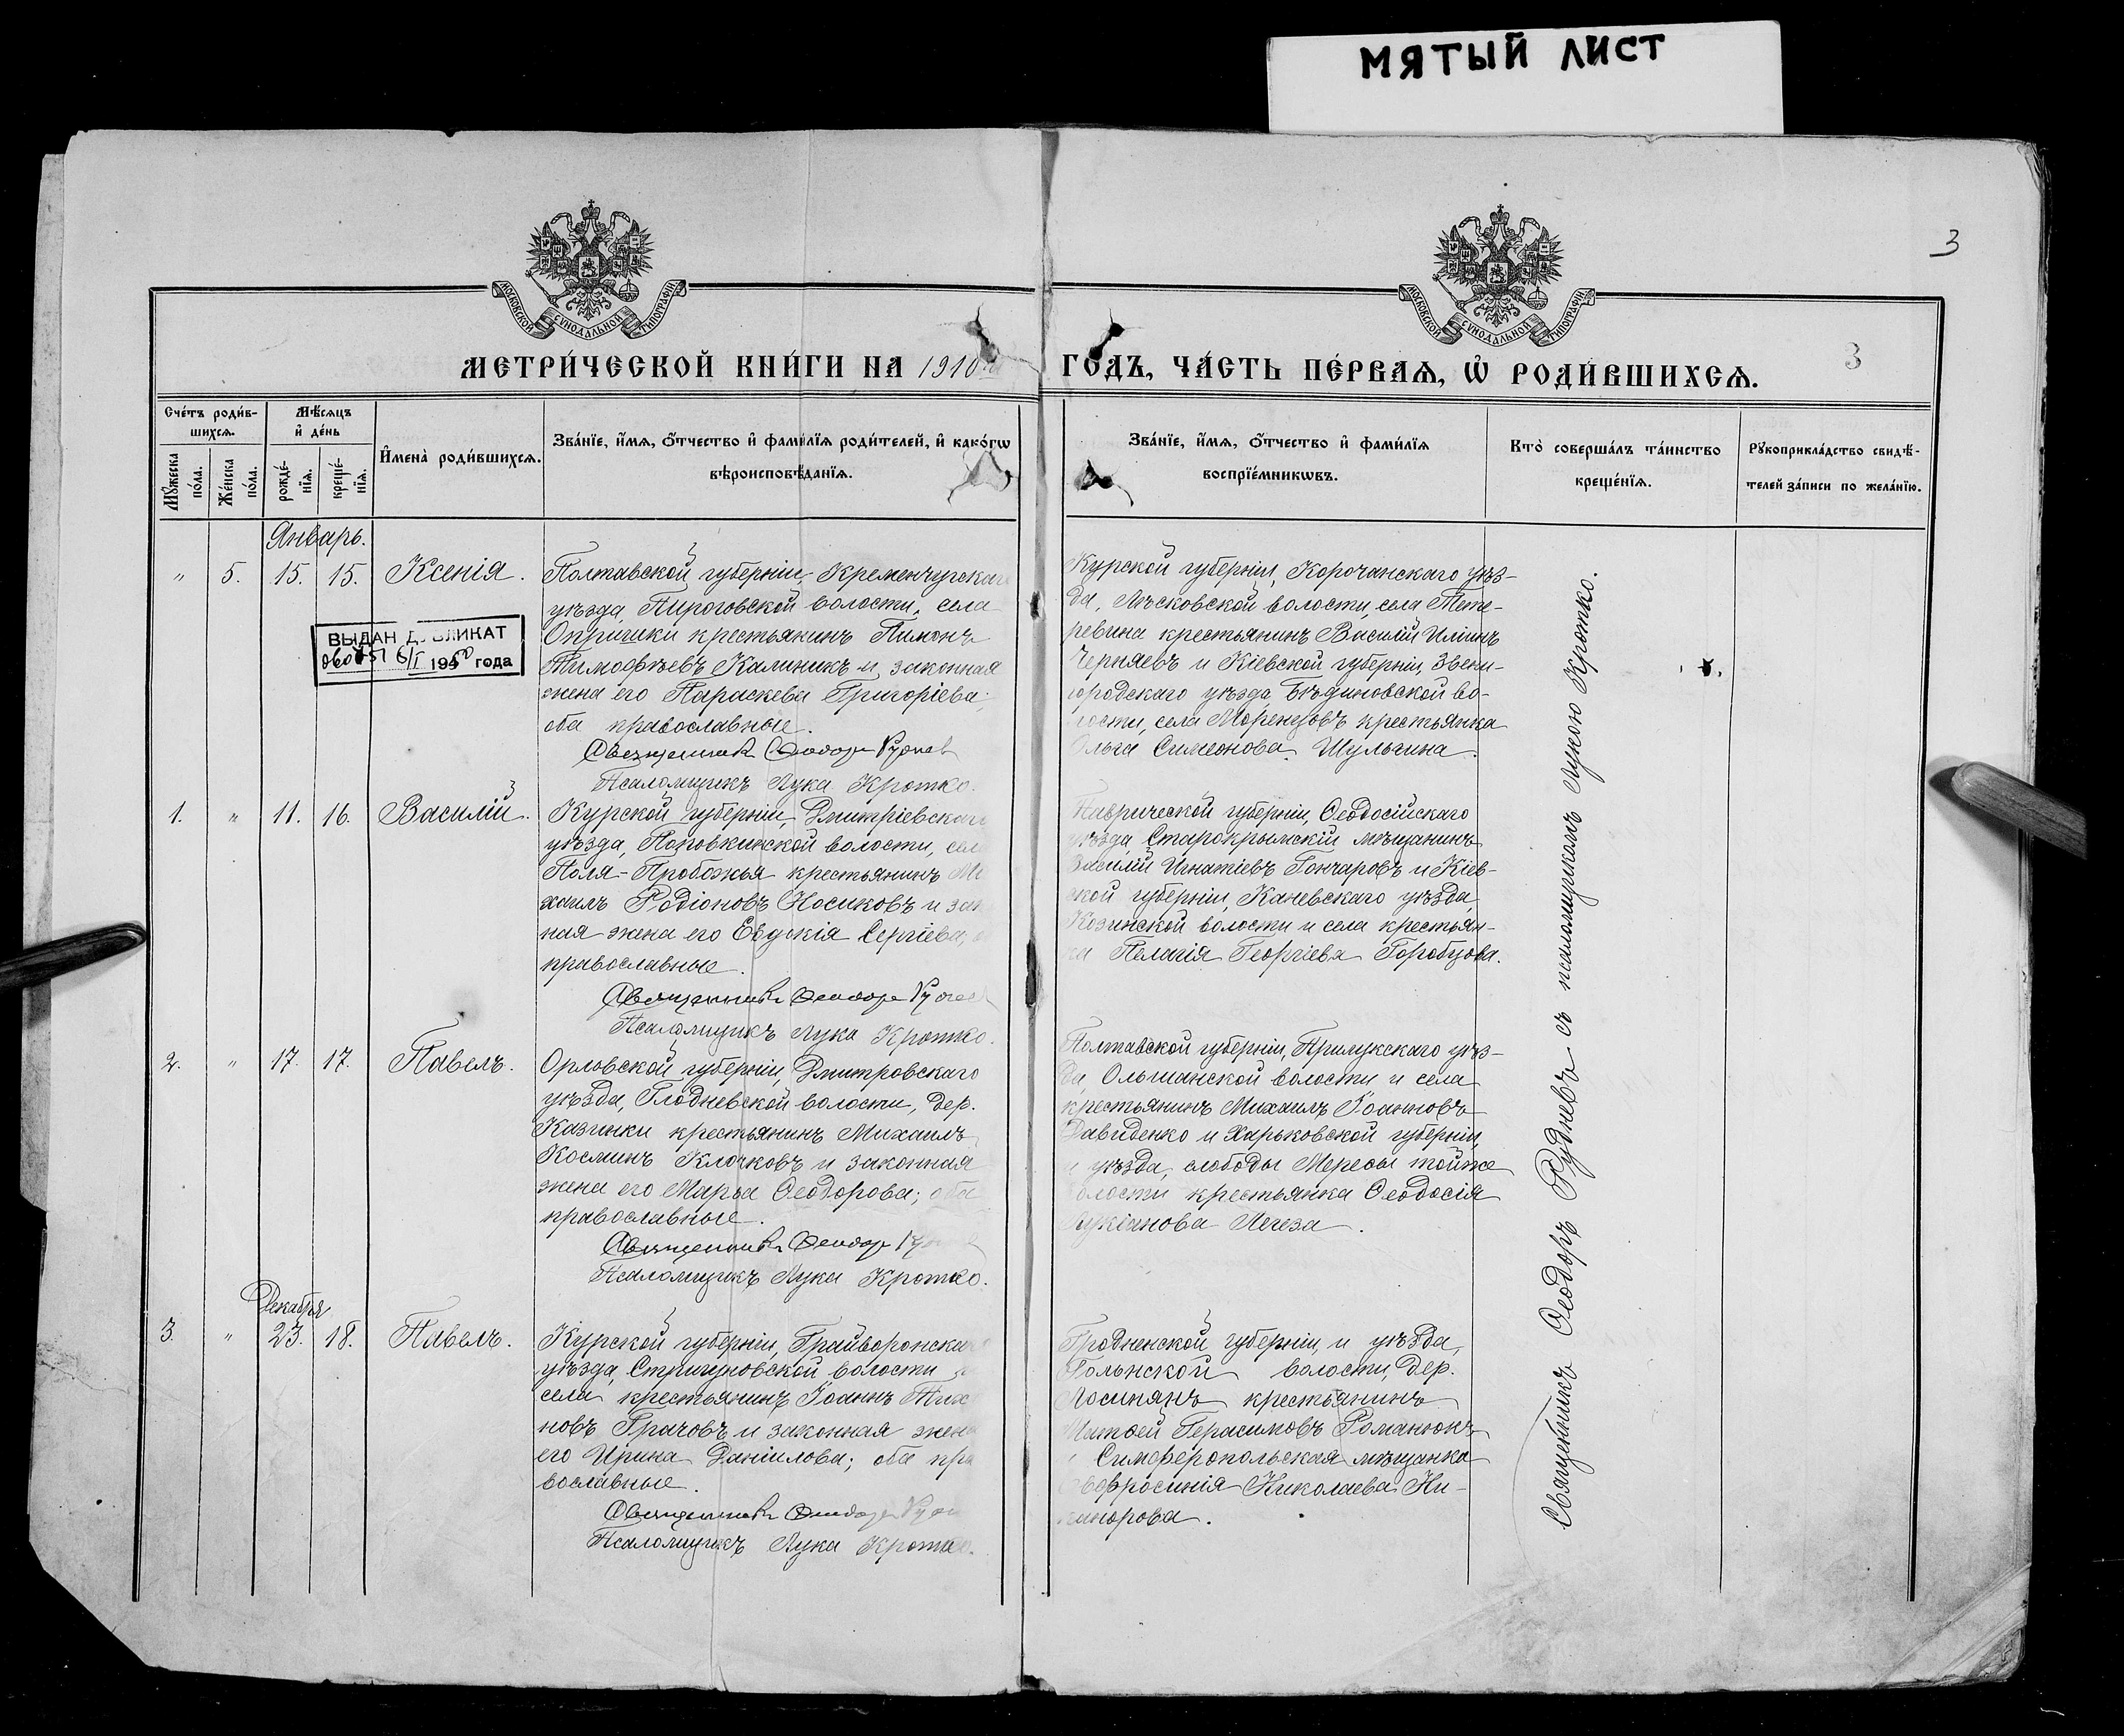 МЯТЫЙ ЛИСТ
3
МОСКОВСКОЙ СѴНОДАЛЬНОЙ ТИПОГРАФІИ
МОСКОВСКОЙ СѴНОДАЛЬНОЙ ТИПОГРАФІИ
МЕТРИ́ЧЕСКОЙ КНИ́ГИ НА 1910
ГО́ДЪ, ЧА́СТЬ ПЕ́РВАѦ, Ѡ҆ РОДИ́ВШИХСѦ.
3
Сче́тъ роди́в-
шихсѧ.
Мꙋ́жеска по́ла.
Же́нска по́ла.
Мѣ́сѧцъ
и҆ де́нь
рожде́-
нїѧ.
креще́-
нїѧ.
И҆мена̀ роди́вшихсѧ.
Зва́нїе, и҆́мѧ, ѻ҆́тчество и҆ фами́лїѧ роди́телей, и҆ како́гѡ
вѣроисповѣ́данїѧ.
Зва́нїе, и҆́мѧ, ѻ҆́тчество и҆ фами́лїѧ
воспрїе́мникѡвъ.
Кто̀ соверша́лъ та́инство
креще́нїѧ.
Рꙋкоприкла́дство свидѣ́-
телей за́писи по жела́нїю.
Январь.
" 5. 15. 15. Ксенія.
Полтавской губерніи, Кременчугскаго
уѣзда, Пироговской волости, села
Опришки крестьянинъ Пимонъ
Тимофѣевъ Калиникъ и законная
жена его Параскева Григоріева;
оба православные.
Священникъ Ѳеодоръ Рудневъ
Псаломщикъ Лука Кротко.
ВЫДАН ДУБЛИКАТ
1950 года
Курской губерніи, Корочанскаго уѣз-
да, Лѣсковской волости, села Тете-
ревина крестьянинъ Василій Иліинъ
Черняевъ и Кіевской губерніи, Звени-
городскаго уѣзда
волости, села Моренцовъ крестьянка
Ольга Симеонова Шульгина.
1. " 11. 16. Василій.
Курской губерніи, Дмитріевскаго
уѣзда, Поповкинской волости, села
Поля-Пробожья крестьянинъ Ми
хаилъ Родіоновъ Носиковъ и зак
ная жена его Евдокія Сергіева,
православные.
Священникъ Ѳеодоръ Рудневъ
Псаломщикъ Лука Кротко.
Таврической губерніи, Ѳеодосійскаго
уѣзда, Старокрымскій мѣщанинъ
Василій Игнатіевъ Гончаровъ и Кіев-
ской губерніи, Каневскаго уѣзда,
Козинской волости и села крестьян-
ка Пелагія Георгіева Горобцова.
2. " 17. 17. Павелъ.
Орловской губерніи, Дмитровскаго
уѣзда, Глодневской волости, дер.
Казинки крестьянинъ Михаилъ
Косминъ Клочковъ и законная
жена его Марѳа Ѳеодорова; оба
православные.
Священникъ Ѳеодоръ Рудневъ
Псаломщикъ Лука Кротко.
Полтавской губерніи, Прилукскаго уѣз-
да, Ольшанской волости и села
крестьянинъ Михаилъ Іоанновъ
Давиденко и Харьковской губерніи,
и уѣзда, слободы Мерефы тойже
волости крестьянка Ѳеодосія
Лукіанова Легеза.
Декабря
3. " 23. 18. Павелъ.
Курской губерніи, Грайворонскаго
уѣзда, Стригуновской волости и
села крестьянинъ Іоаннъ Тихо
новъ Грачовъ и законная жена
его Ирина Даніилова; оба пра
вославные.
Священникъ Ѳеодоръ Рудневъ
Псаломщикъ Лука Кротко.
Гродненской губерніи, и уѣзда,
Гольнской волости, дер.
Лосинянъ крестьянинъ
Матѳей Герасимовъ Романюкъ
и Симферопольская мѣщанка
Евфросинія Николаева Ни-
канорова.
Священникъ Ѳеодоръ Рудневъ съ псаломщикомъ Лукою Кротко.